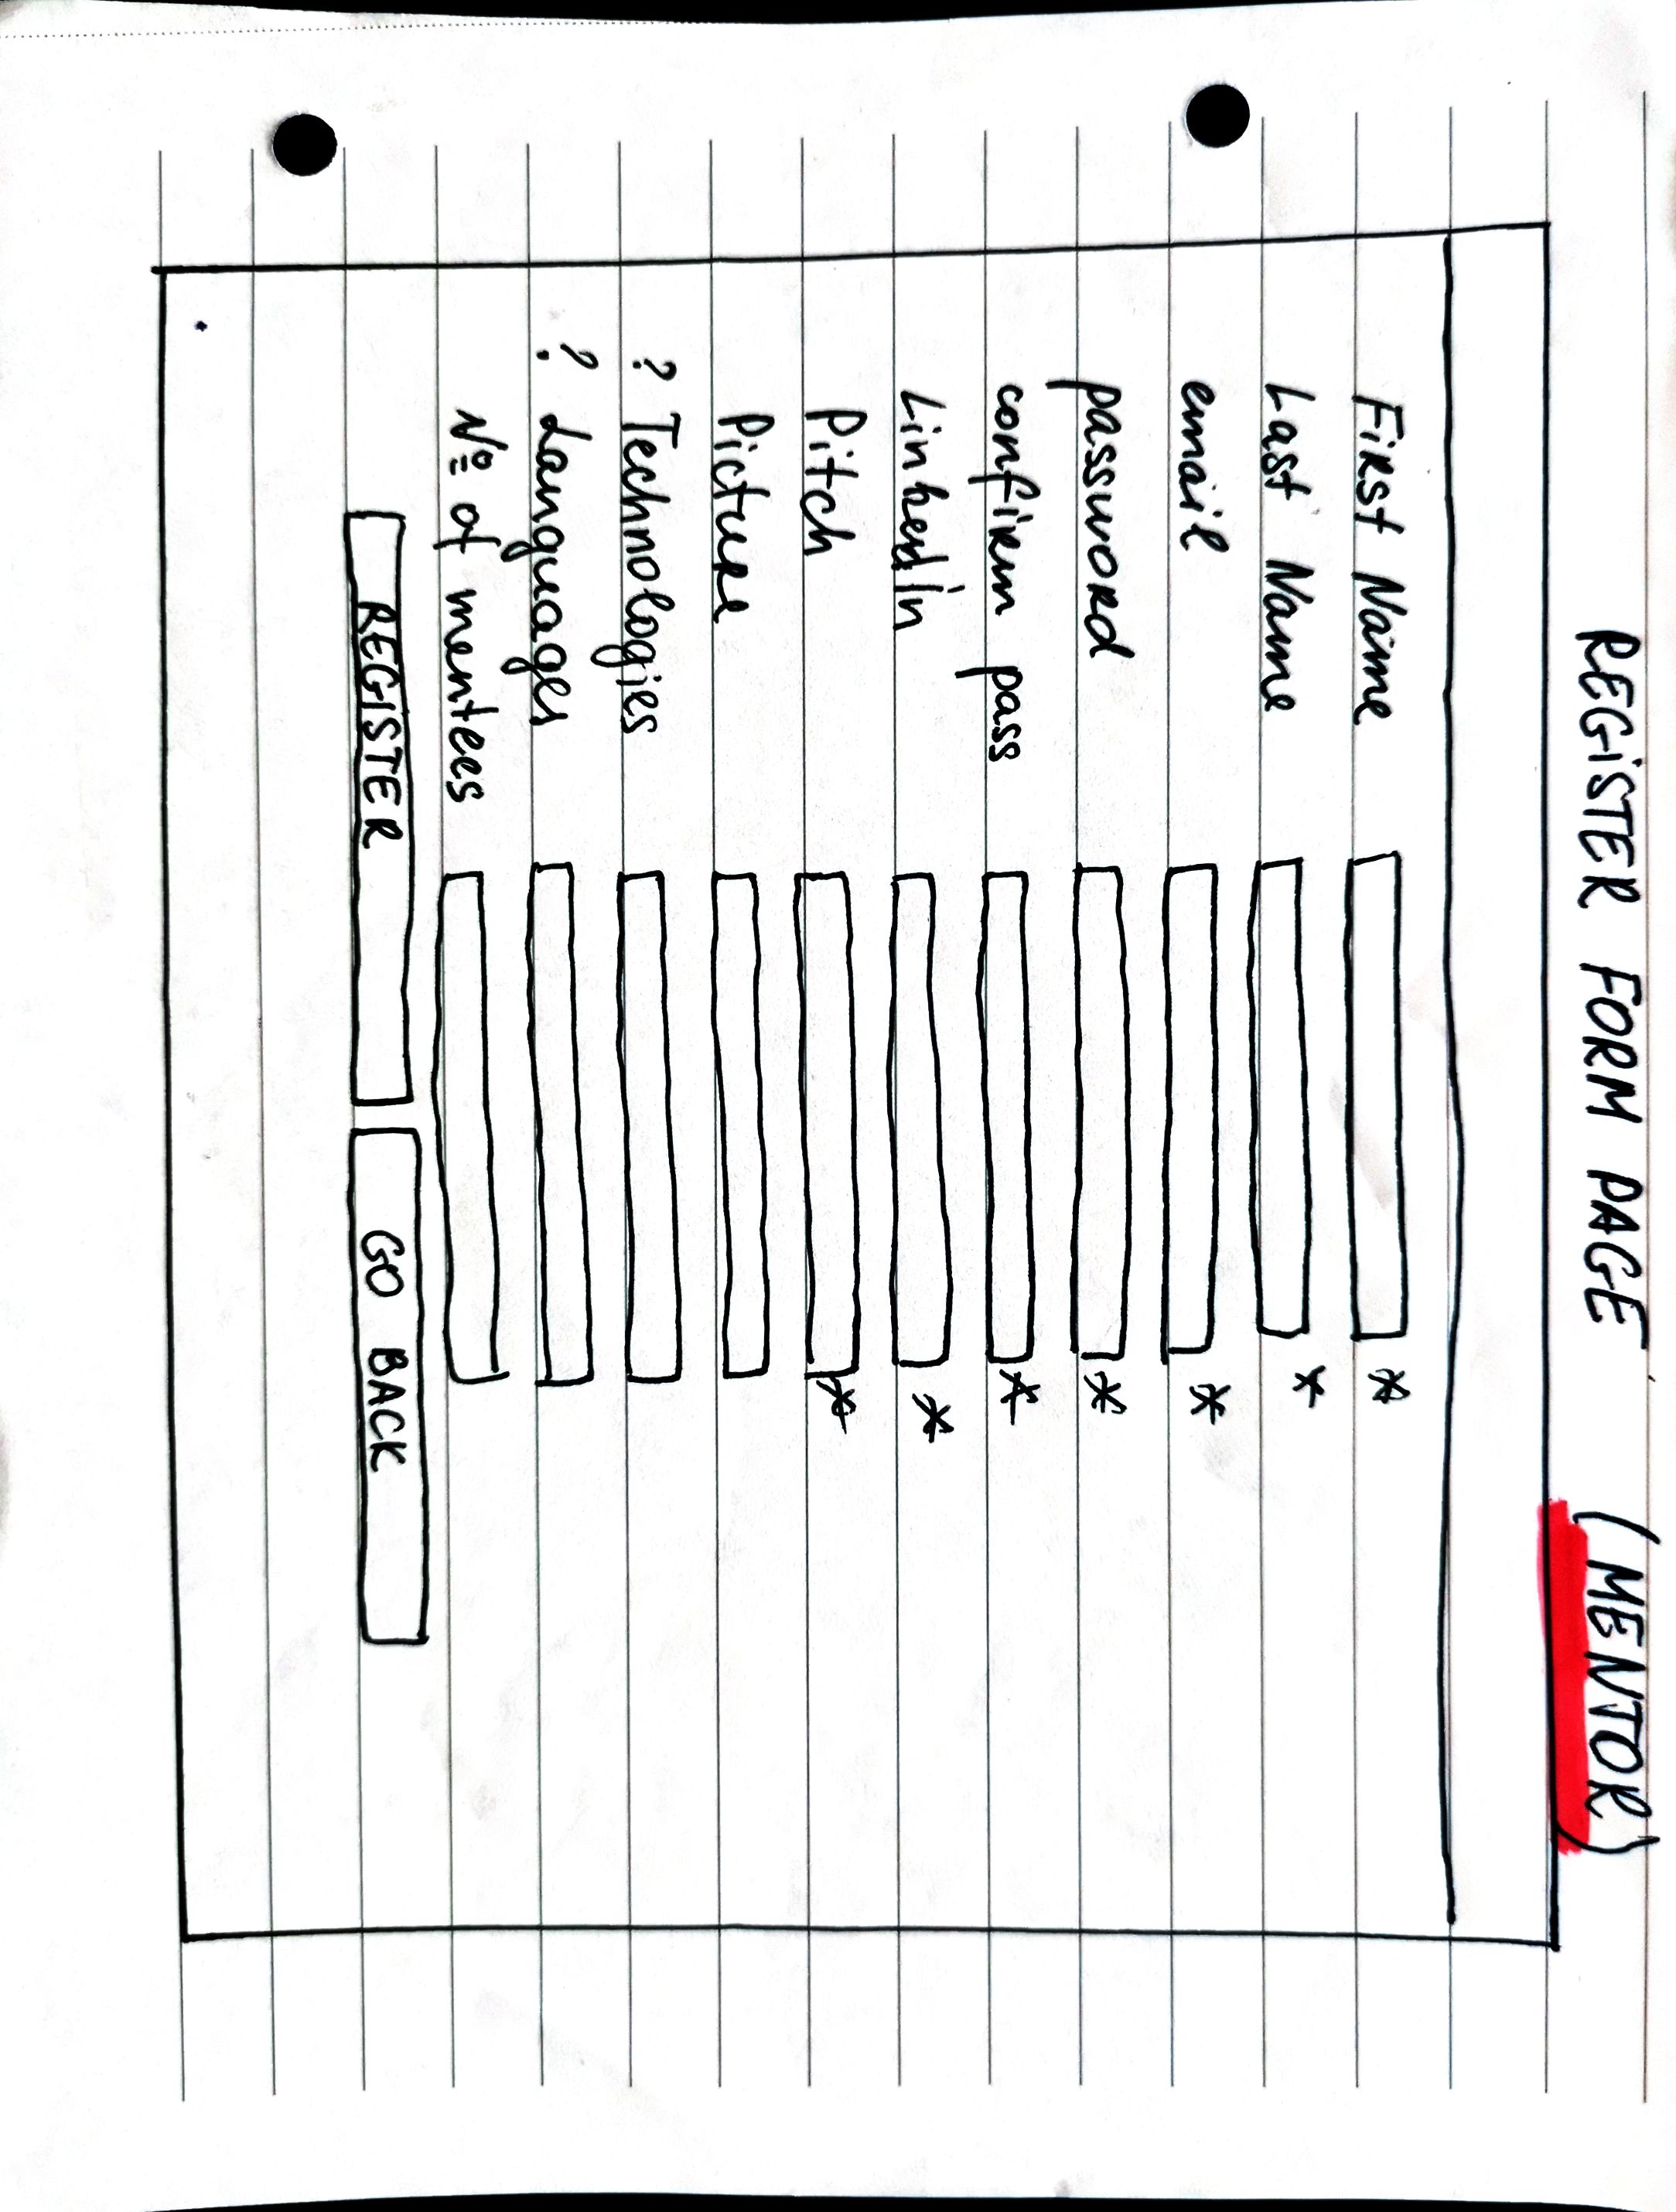 REGiSTER FORM PAGE (MENTOR)
First Name *
Last Name *
email *
password *
confirm pass *
Linkedin *
Pitch *
Picture
? Technologies
? Languages
Nº of mentees
REGISTER GO BACK